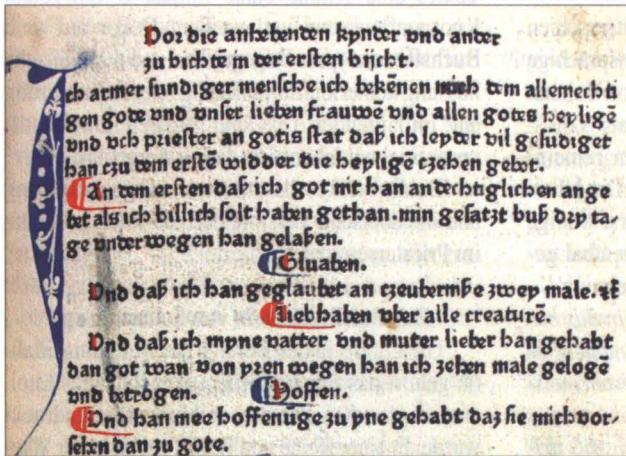 Vor die anhebenden kynder vnd ander
zu bichtē in der ersten bijcht.
Ich armer sundiger mensche ich bekēnen mich dem allemechti
gen gote vnd vnser lieben frauwē vnd allen gotes heyligē
vnd vch priester an gotis stat daß ich leyder vil gesūdiget
han czu dem erstē widder die heylige czehen gebot.
An dem ersten daß ich got nit han andechtiglichen ange
bet als ich billich solt haben gethan. min gesatzt buß dry ta-
ge vnder wegen han gelaßen.
Gluaben.
Vnd daß ich han geglaubet an czeubernisse zwey male. ꝛc̄
Liebhaben vber alle creaturē.
Vnd daß ich myne vatter vnd muter lieber han gehabt
dan got wan von yren wegen han ich zehen male gelogē
vnd betrogen. Hoffen.
Vnd han mee hoffenūge zu yne gehabt daz sie mich vor-
sehen dan zu gote.